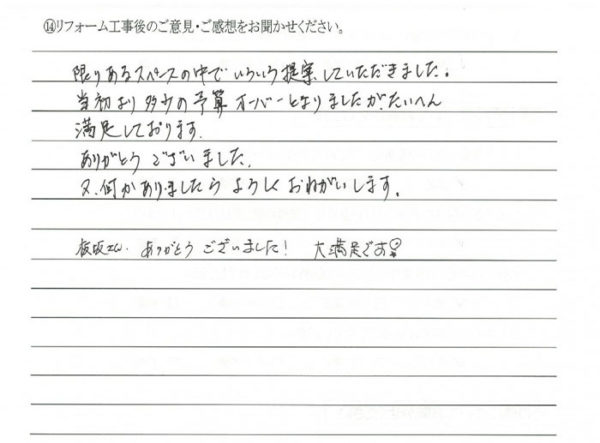 ⑭リフォーム工事後のご意見・ご感想をお聞かせください。
限りあるスペースの中でいろいろ提案していただきました。
当初より多少の予算オーバーとなりましたが、たいへん
満足しております。
ありがとうございました。
又、何かありましたらよろしくおねがいします。
板坂さん、ありがとうございました! 大満足です